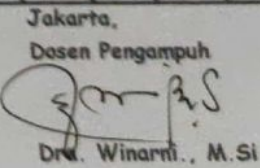 Jakarta,
Dosen Pengampuh
Dra. Winarni., M.Si